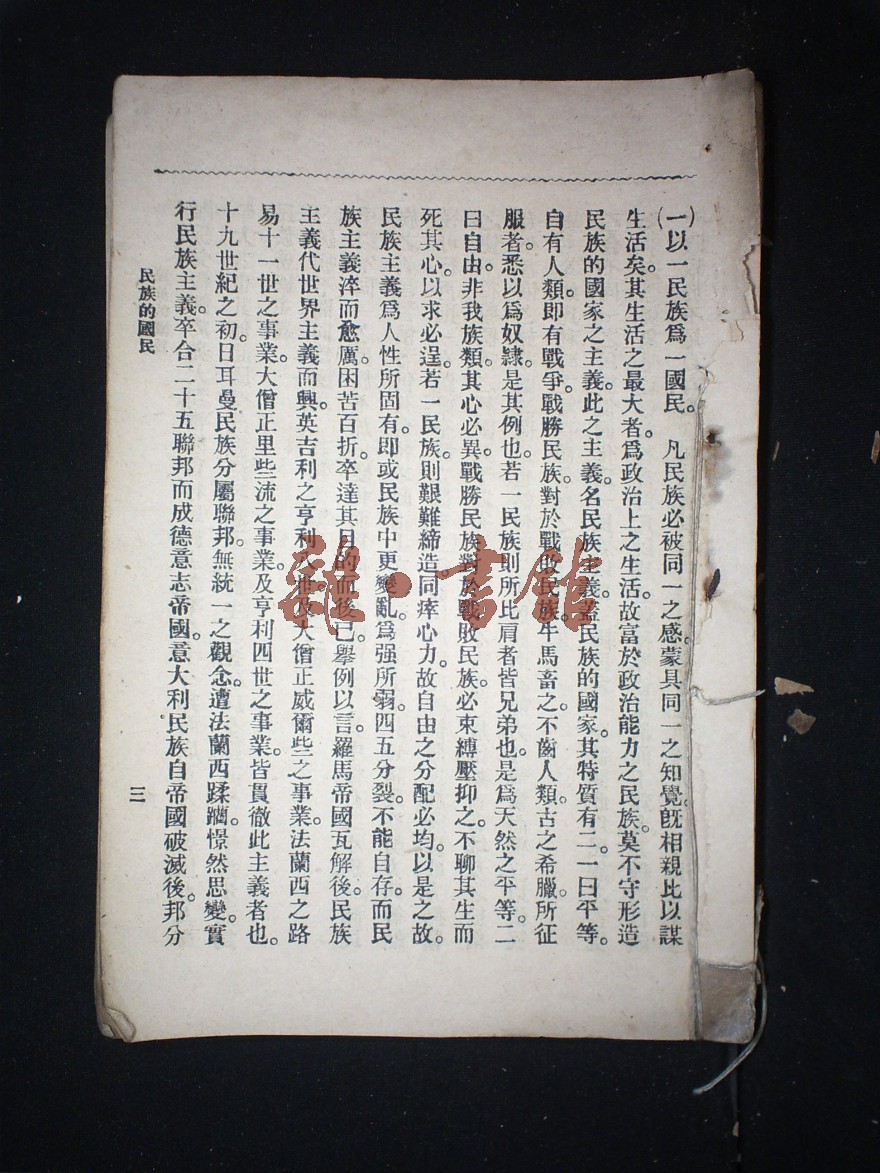 (一)以一民族爲一國民。　凡民族必被同一之感。蒙具同一之知覺。旣相親比以謀
生活矣。其生活之最大者。爲政治上之生活。故富於政治能力之民族。莫不守形造
民族的國家之主義。此之主義。名民族主義。蓋民族的國家。其特質有二。一曰平等。
自有人類。即有戰爭。戰勝民族。對於戰敗民族。牛馬畜之。不齒人類。古之希臘。所征
服者。悉以爲奴隸。是其例也。若一民族則所比肩者皆兄弟也。是爲天然之平等。二
曰自由。非我族類。其心必異。戰勝民族對於戰敗民族。必束縛壓抑之。不聊其生而
死其心以求必逞。若一民族。則艱難締造同瘁心力。故自由之分配必均。以是之故。
民族主義爲人性所固有。即或民族中更變亂。爲强所弱。四五分裂。不能自存。而民
族主義淬而愈厲。困苦百折。卒達其目的而後已。舉例以言。羅馬帝國瓦解後。民族
主義代世界主義而興。英吉利之亨利八世及大僧正威爾些之事業。法蘭西之路
易十一世之事業。大僧正里些流之事業。及亨利四世之事業。皆貫徹此主義者也。
十九世紀之初。日耳曼民族分屬聯邦。無統一之觀念。遭法蘭西蹂躪。憬然思變。實
行民族主義。卒合二十五聯邦而成德意志帝國。意大利民族自帝國破滅後。邦分
民族的國民
三
雜·書館